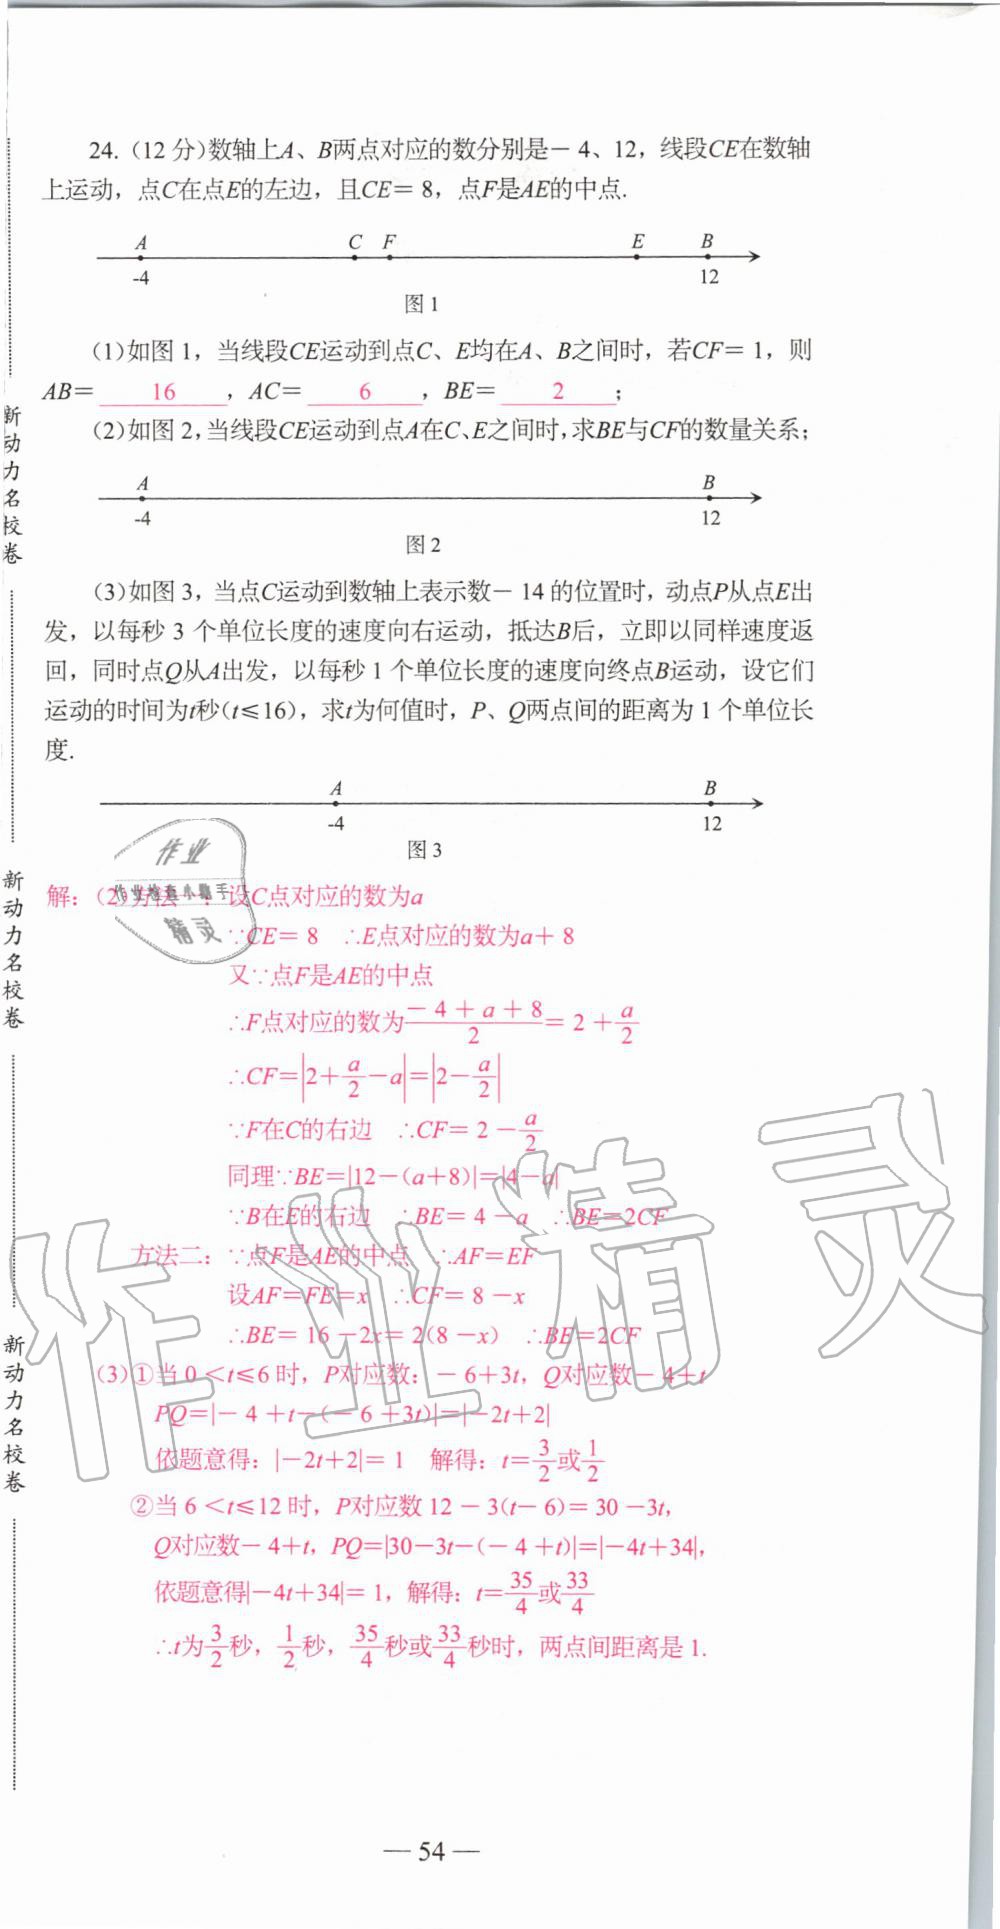 24.（12 分）数轴上A、B两点对应的数分别是－4、12，线段CE在数轴
上运动，点C在点E的左边，且CE＝8，点F是AE的中点.
A C F E B
-4 12
图 1
（1）如图 1，当线段CE运动到点C、E均在A、B之间时，若CF＝1，则
AB＝ 16 ，AC＝ 6 ，BE＝ 2 ；
（2）如图 2，当线段CE运动到点A在C、E之间时，求BE与CF的数量关系；
A B
-4 12
图 2
（3）如图 3，当点C运动到数轴上表示数－14 的位置时，动点P从点E出
发，以每秒 3 个单位长度的速度向右运动，抵达B后，立即以同样速度返
回，同时点Q从A出发，以每秒 1 个单位长度的速度向终点B运动，设它们
运动的时间为t秒（t≤16），求t为何值时，P、Q两点间的距离为 1 个单位长
度.
A B
-4 12
图 3
解：（2）方法一：设C点对应的数为a
∵CE＝8 ∴E点对应的数为a＋8
又∵点F是AE的中点
∴F点对应的数为(－4＋a＋8)/2＝2＋a/2
∴CF＝|2＋a/2－a|＝|2－a/2|
∵F在C的右边 ∴CF＝2－a/2
同理∵BE＝|12－(a＋8)|＝|4－a|
∵B在E的右边 ∴BE＝4－a ∴BE＝2CF
方法二：∵点F是AE的中点 ∴AF＝EF
设AF＝FE＝x ∴CF＝8－x
∴BE＝16－2x＝2(8－x) ∴BE＝2CF
（3）①当 0＜t≤6 时，P对应数：－6＋3t，Q对应数－4＋t
PQ＝|－4＋t－(－6＋3t)|＝|－2t＋2|
依题意得：|－2t＋2|＝1 解得：t＝3/2或1/2
②当 6＜t≤12 时，P对应数 12－3(t－6)＝30－3t，
Q对应数－4＋t，PQ＝|30－3t－(－4＋t)|＝|－4t＋34|，
依题意得|－4t＋34|＝1，解得：t＝35/4或33/4
∴t为3/2秒，1/2秒，35/4秒或33/4秒时，两点间距离是 1.
— 54 —
新动力名校卷
新动力名校卷
新动力名校卷
作业
作业检查小助手
精灵
作业精灵